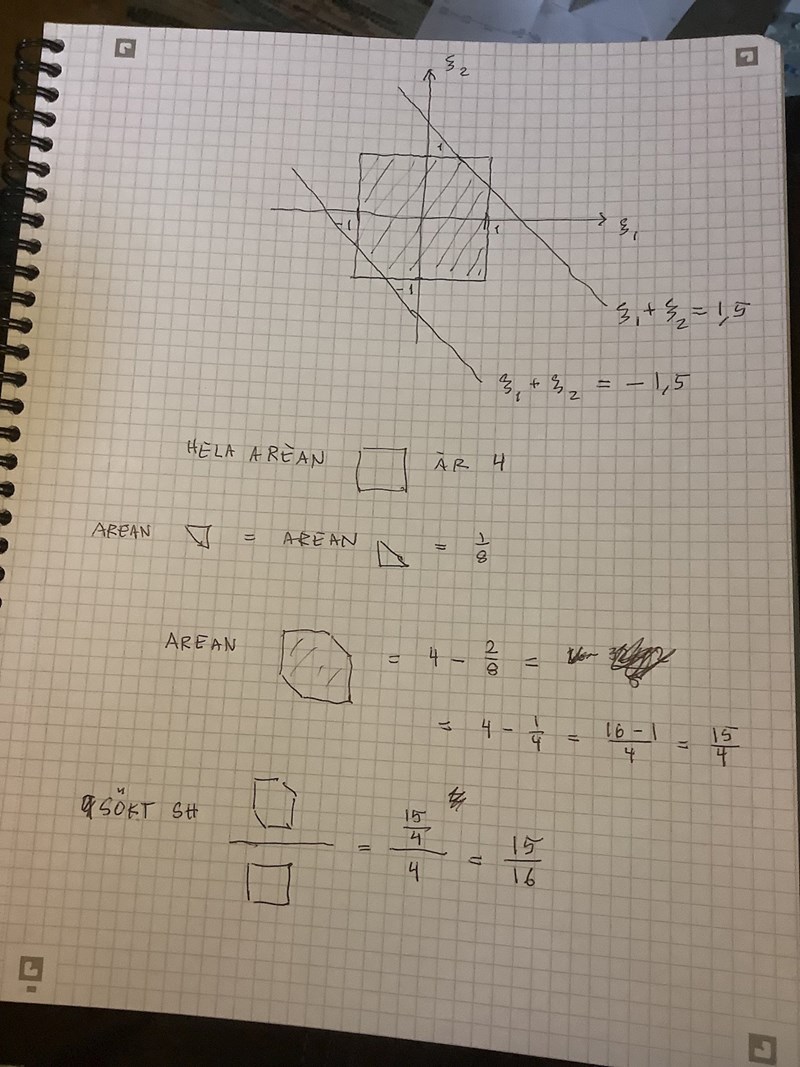 ξ₂
1
-1
1
ξ₁
-1
ξ₁ + ξ₂ = 1,5
ξ₁ + ξ₂ = -1,5
HELA AREAN □ ÄR 4
AREAN = AREAN = 1/8
AREAN = 4 - 2/8 =
= 4 - 1/4 = (16-1)/4 = 15/4
SÖKT SH = (15/4)/4 = 15/16